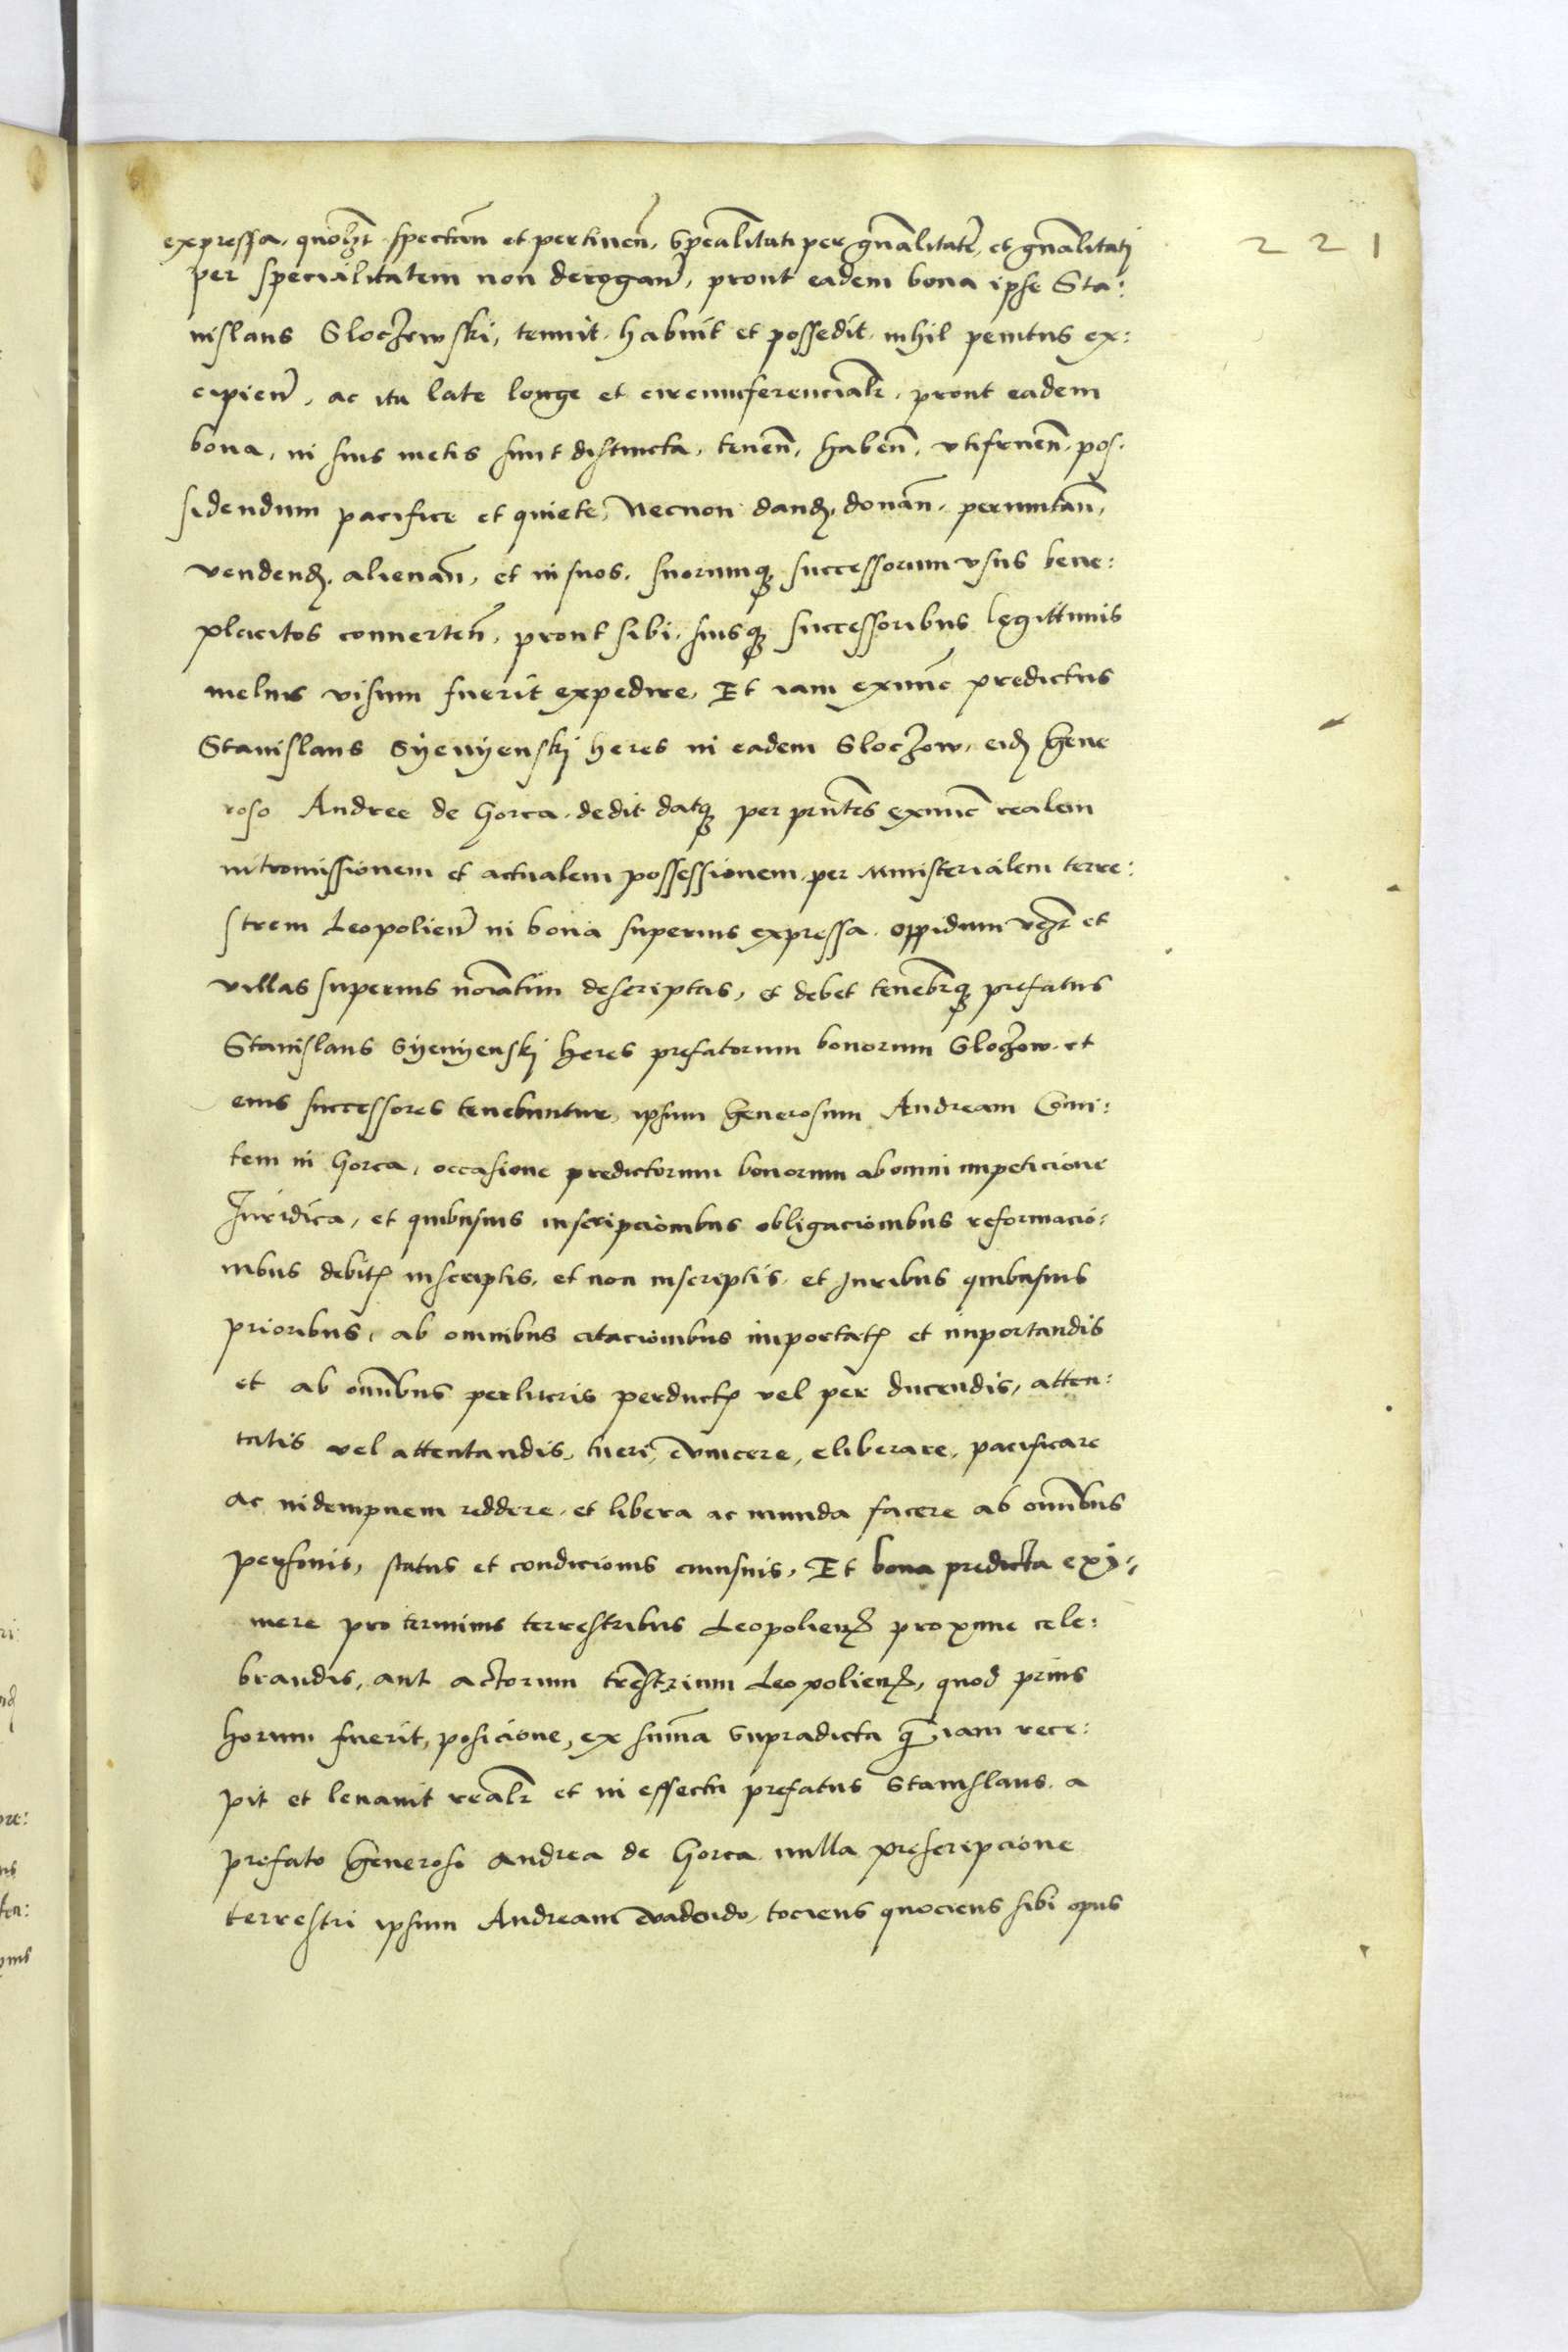 expressa, quolzt spectan̄ et pertinen̄, Specalitati per gn̄alitatē, et gn̄alitatj
221
per specialitatem non derogan̄, prout eadem bona ipse Sta:
nislaus Sloczowski, tenuit, habuit et possedit, nihil penitus ex:
cipien̄, ac ita late longe et circumferencialr̄, prout eadem
bona, in suis metis sunt distincta, tenen̄, haben̄, vtifruen̄, pos.
sidendum pacifice et quiete, Necnon dand, donan̄, permutan̄,
vendend, alienan̄, et in suos, suorumq successorum vsus bene:
placitos conuerten̄, prout sibi, suisq successoribus legittimis
melius visum fuerit expedire, Et iam exnunc predictus
Stanislaus Syenyenskj heres in eadem Sloczow, eid gene
roso Andree de Gorca, dedit datq per pn̄tes exnunc realem
intromissionem et actualem possessionem, per Ministerialem terre:
strem Leopolien̄ in bona superius expressa, oppidum vzr̄ et
villas superius no͞iatim descriptas, et debet tenebr̄q prefatus
Stanislaus Syenyenskj heres prefatorum bonorum Sloczow et
eius successores tenebuntur, ipsum generosum Andream Comi:
tem in Gorca, occasione predictorum bonorum ab omni impeticione
Juridica, et quibusuis inscripcionibus obligacionibus reformacio:
nibus debit inscriptis, et non inscriptis, et Juribus quibusuis
prioribus, ab omnibus citacionibus importat et importandis
et ab omnibus perlucris perduct vel per ducendis, atten:
tatis vel attentandis, tueri, evincere, eliberare, pacificare
ac indempnem reddere, et libera ac munda facere ab omnibus
personis, status et condicionis cuiusuis, Et bona predicta exi-
mere pro terminis terrestribus Leopolien proxime cele:
brandis, aut actorum trēstrium Leopolien, quod prius
horum fuerit, posicione, ex sum̄a supradicta q̄ iam rece:
pit et leuauit realr̄ et in effectu prefatus Stanislaus a
prefato generoso Andrea de Gorca nulla prescripcione
terrestri ipsum Andream evadendo, tociens quociens sibi opus